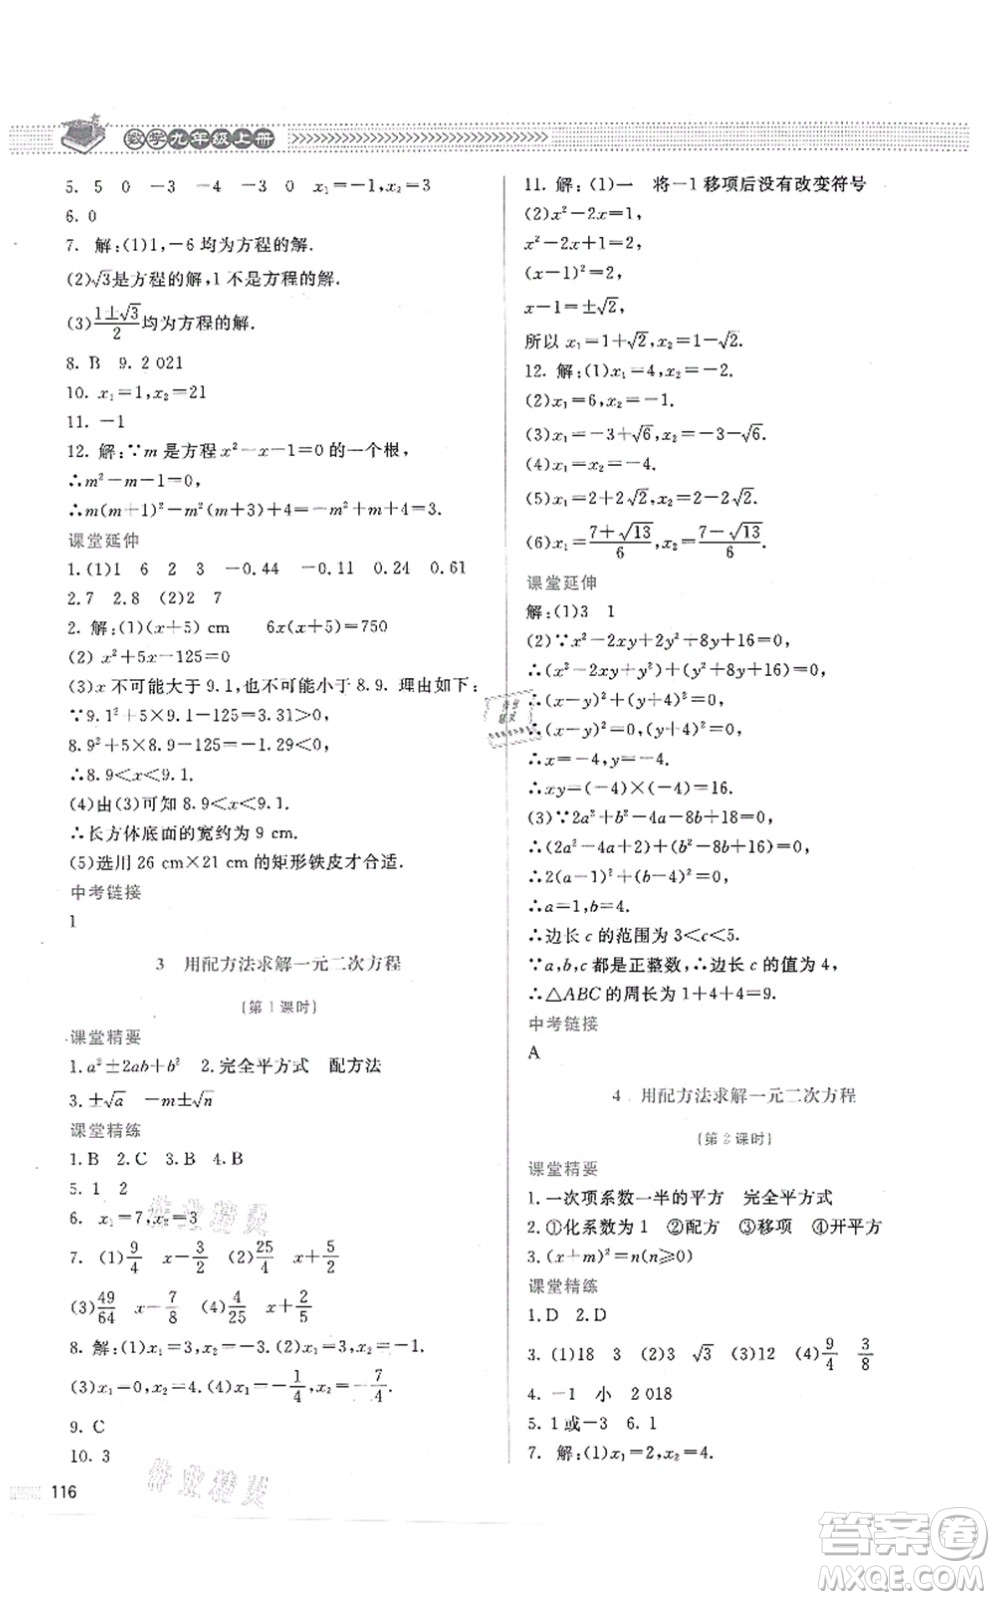 数学九年级上册
5. 5 0 −3 −4 −3 0 x₁=−1,x₂=3
6. 0
7. 解:(1)1,−6均为方程的解.
(2)√3是方程的解,1不是方程的解.
(3)(1±√3)/2均为方程的解.
8. B 9. 2 021
10. x₁=1,x₂=21
11. −1
12. 解:∵m是方程x²−x−1=0的一个根,
∴m²−m−1=0,
∴m(m+1)²−m²(m+3)+4=−m²+m+4=3.
课堂延伸
1.(1)1 6 2 3 −0.44 −0.11 0.24 0.61
2.7 2.8 (2)2 7 2 7
2. 解:(1)(x+5) cm 6x(x+5)=750
(2) x²+5x−125=0
(3)x不可能大于9.1,也不可能小于8.9. 理由如下:
∵9.1²+5×9.1−125=3.31>0,
8.9²+5×8.9−125=−1.29<0,
∴8.9<x<9.1.
(4)由(3)可知8.9<x<9.1,
∴长方体底面的宽约为9 cm.
(5)选用26 cm×21 cm的矩形铁皮才合适.
中考链接
1
3 用配方法求解一元二次方程
(第1课时)
课堂精要
1. a²±2ab+b² 2. 完全平方式 配方法
3. ±√a −m±√n
课堂精练
1. B 2. C 3. B 4. B
5. 1 2
6. x₁=7,x₂=3
7. (1)9/4 x−3/2 (2)25/4 x+5/2
(3)49/64 x−7/8 (4)4/25 x+2/5
8. 解:(1)x₁=3,x₂=−3.(2)x₁=3,x₂=−1.
(3)x₁=2,x₂=4.(4)x₁=−1/4,x₂=−7/4.
9. C
10. 3
116
11. 解:(1)一 将−1移项后没有改变符号
(2)x²−2x=1,
x²−2x+1=2,
(x−1)²=2,
x−1=±√2,
所以x₁=1+√2,x₂=1−√2.
12. 解:(1)x₁=4,x₂=−2.
(2)x₁=6,x₂=−1.
(3)x₁=−3+√6,x₂=−3−√6.
(4)x₁=x₂=−4.
(5)x₁=2+2√2,x₂=2−2√2.
(6)x₁=(7+√13)/6,x₂=(7−√13)/6.
课堂延伸
解:(1)3 1
(2)∵x²−2xy+2y²+8y+16=0,
∴(x²−2xy+y²)+(y²+8y+16)=0,
∴(x−y)²+(y+4)²=0,
∴(x−y)²=0,(y+4)²=0,
∴x=−4,y=−4.
∴xy=(−4)×(−4)=16.
(3)∵2a²+b²−4a−8b+18=0,
∴(2a²−4a+2)+(b²−8b+16)=0,
∴2(a−1)²+(b−4)²=0.
∴a=1,b=4.
∴边长c的范围为3<c<5.
∵a,b,c都是正整数,∴边长c的值为4,
∴△ABC的周长为1+4+4=9.
中考链接
A
4 用配方法求解一元二次方程
(第2课时)
课堂精要
1. 一次项系数一半的平方 完全平方式
2. ①化系数为1 ②配方 ③移项 ④开平方
3. (x+m)²=n(n≥0)
课堂精练
1. D 2. D
3. (1)18 3 (2)3 √3 (3)12 (4)9/4 3/8
4. −1 小 2 018
5. 1或−3 6. 1
7. 解:(1)x₁=2,x₂=4.
作业精灵
作业精灵
作业精灵
答案圈
MXQE.COM